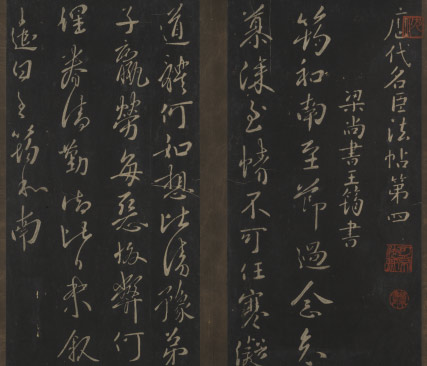 歷代名臣法帖第四
梁尚書王筠書
筠和南至節過念哀
慕深至情不可任寒凝
道體何如想比清豫弟
子羸勞每惡弊何
理眷清勤比日來叙
遣白王筠和南